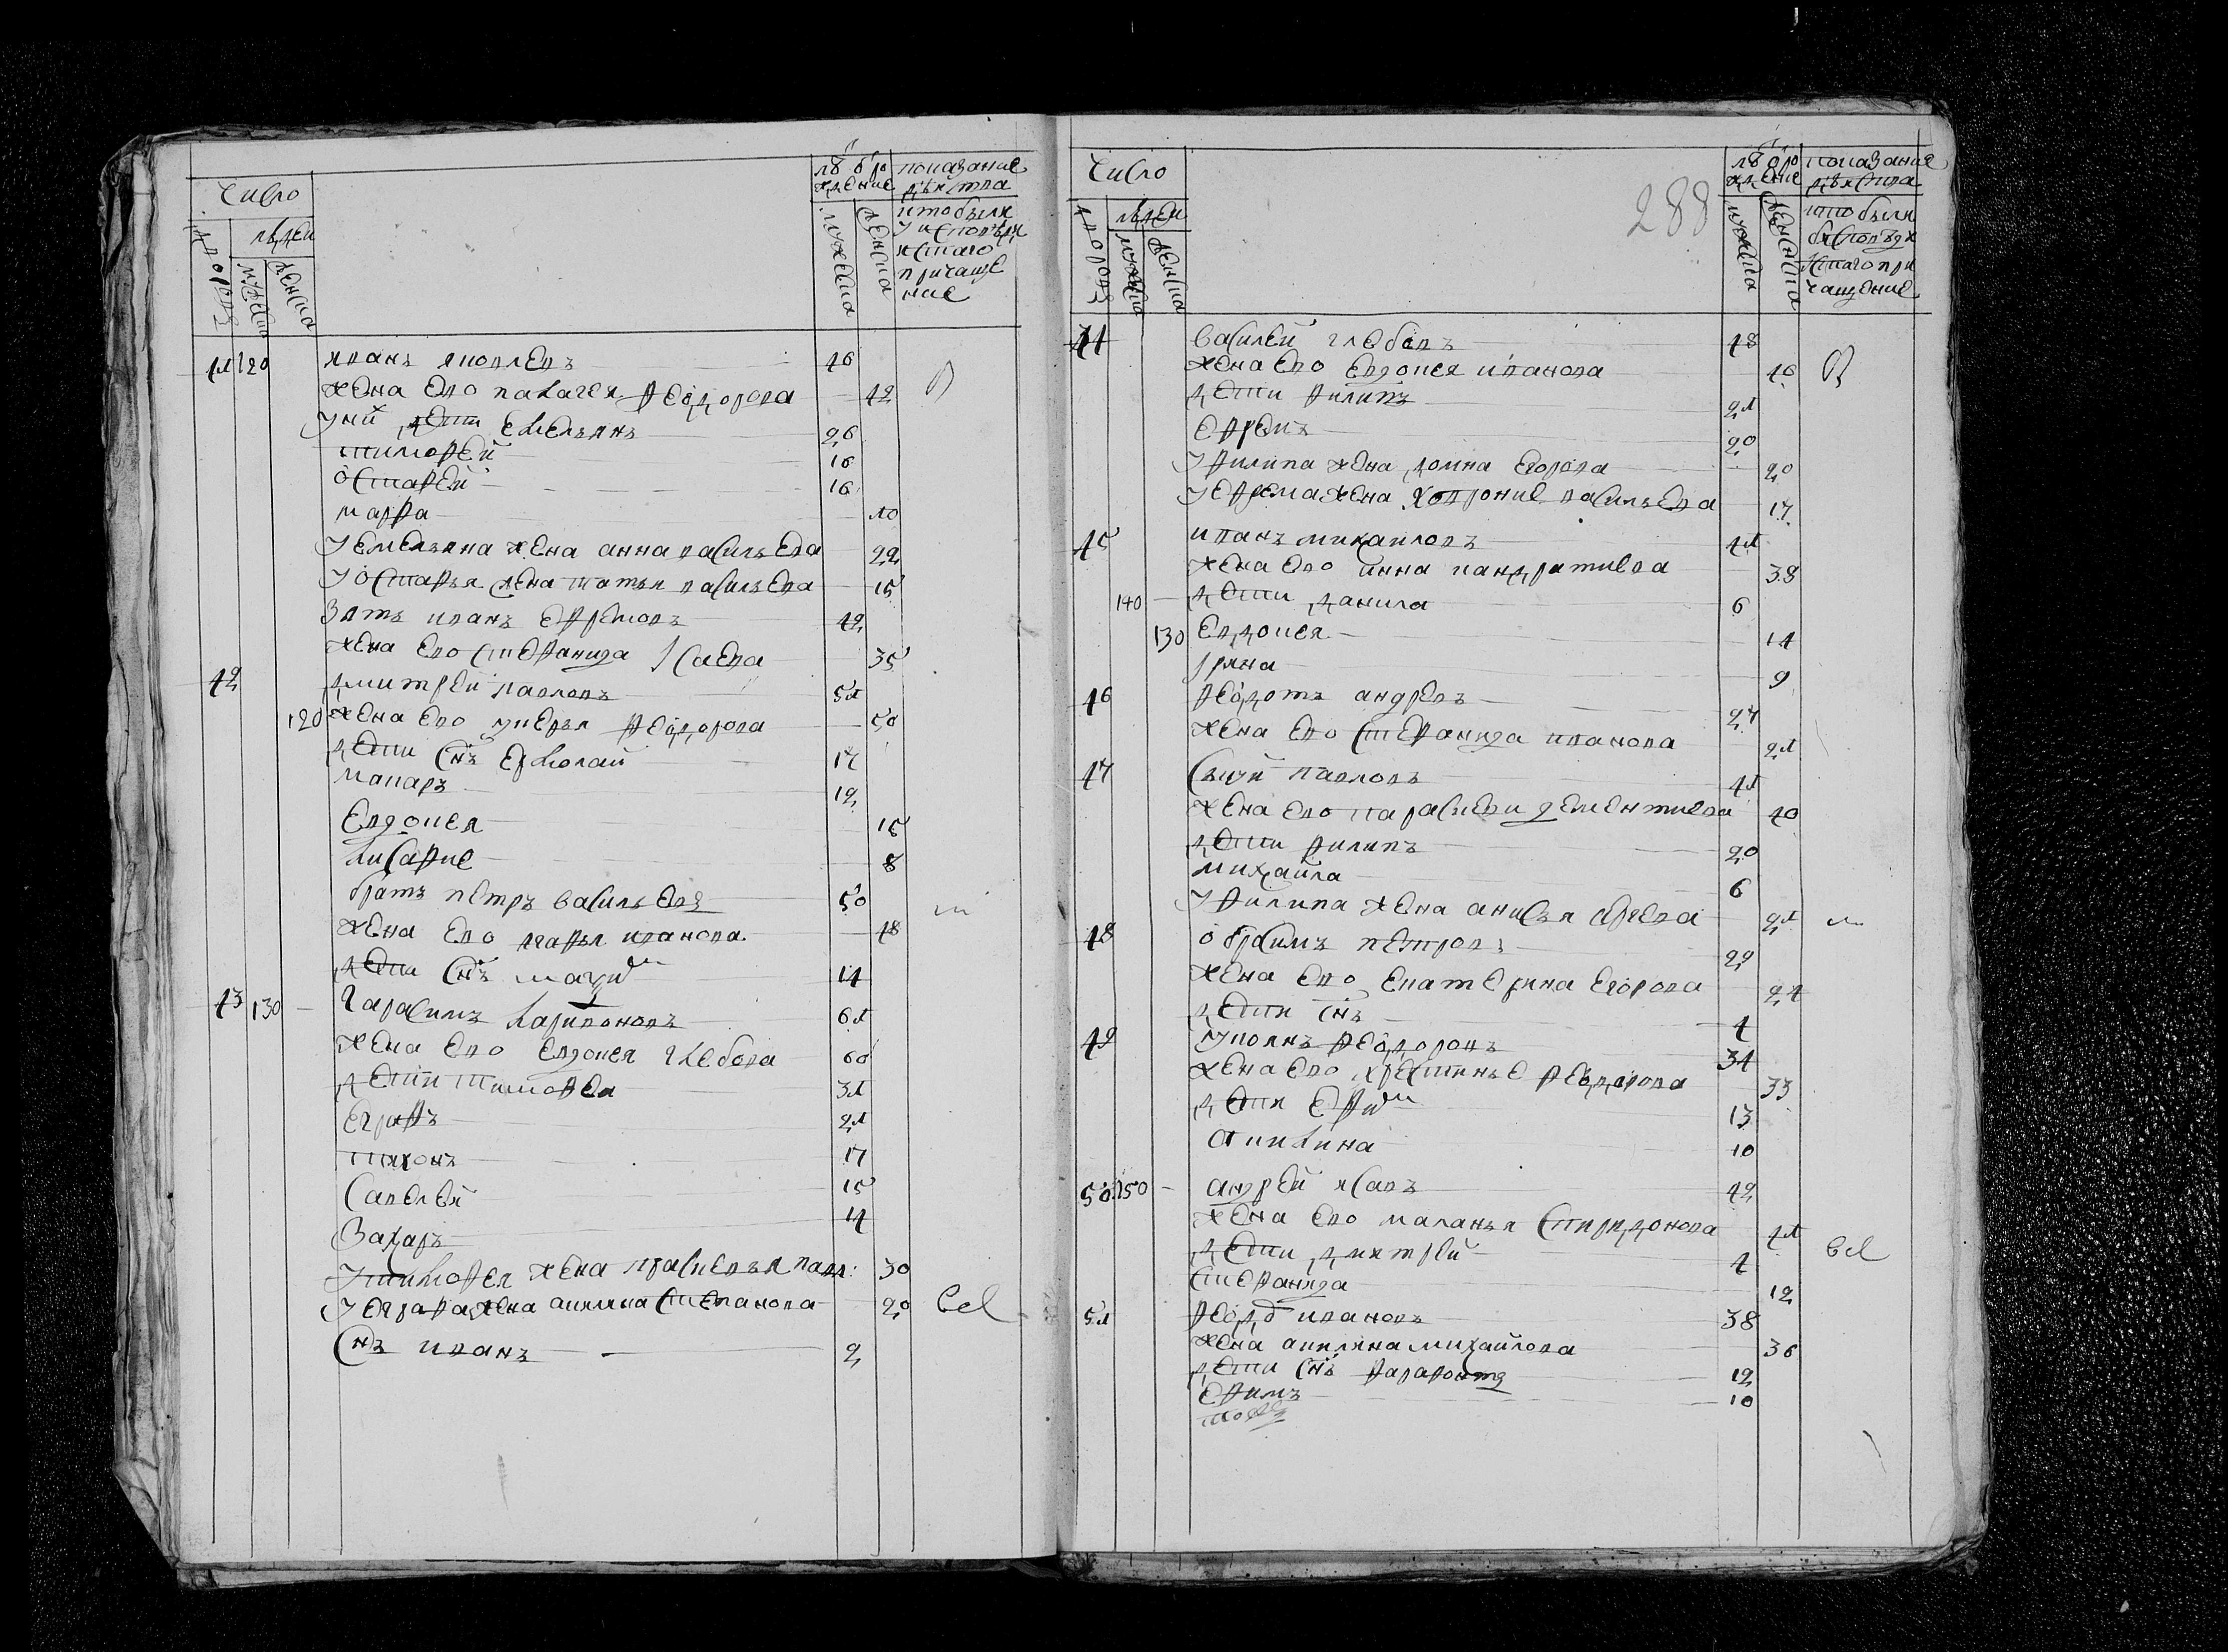 число
людей
дворовъ
мужеска
женска
лѣ б рождение
мужеска
женска
показание
дѣйства
кто были
у исповѣди
и стаго
причаще
ние
41 120 иванъ яковлевъ 46
жена ево палагея федорова 42
у ниⷯ дети емельянъ 26
тимофей 18
остафей 16
марфа 10
у емельяна жена анна васильева 22
у остафья жена татья васильева 15
зять иванъ ефремовъ 42
жена ево стефанида исаева 35
42 дмитрей павловъ 51
120 жена ево лукерья федорова 50
дети снъ ермолай 17
макаръ 12
евдокея 15
8
братъ петръ васильевъ 50
жена ево агафья иванова 48
дети снъ 14
43 130 гарасимъ ларивоновъ 61
жена ево евдокея глебова 60
дети тимофей 31
еграфъ 21
тихонъ 17
савелей 15
захаръ 14
у тимофея жена прасковья павл: 30
у еграфа жена акилина степанова 20
снъ иванъ 2
288
число
людей
дворовъ
мужеска
женска
лѣ б рождение
мужеска
женска
показание
дѣйства
кто были
у исповѣди
и стаго при
чащение
44 василей глебовъ 48
жена ево евдокея иванова 46
дети филипъ 21
ефремъ 20
у филипа жена домна егорова 20
у ефрема жена ховроние васильева 17
45 иванъ михаиловъ 41
жена ево анна кандратиева 38
140 дети данила 6
130 евдокея 14
ирина 9
46 федотъ андревъ 27
жена ево стефанида иванова 21
47 павловъ 41
жена ево параскеви дементиева 40
дети филипъ 20
михайла 6
у филипа жена анисья 21
48 абрасимъ петровъ 22
жена ево екатерина егорова 24
дети снъ 4
49 федоровъ 34
жена ево християне федорова 33
дети 13
акилина 10
50 150 андрей исавъ 42
жена ево маланья спиридонова 41
дети дмитрей 4
стефанида 12
51 федоⷬ ивановъ 38
жена акилина михайлова 36
дети снъ фарафонтъ 12
ефимъ 10